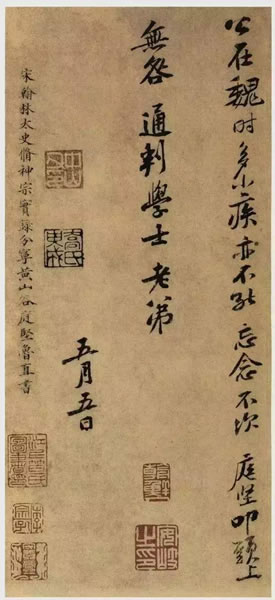 公在魏时多小疾亦不能忘念不次 庭坚叩頭上
無咎 通判學士老弟
五月五日
宋翰林太史脩神宗實錄分寧黄山谷庭堅魯直書
安岐之印